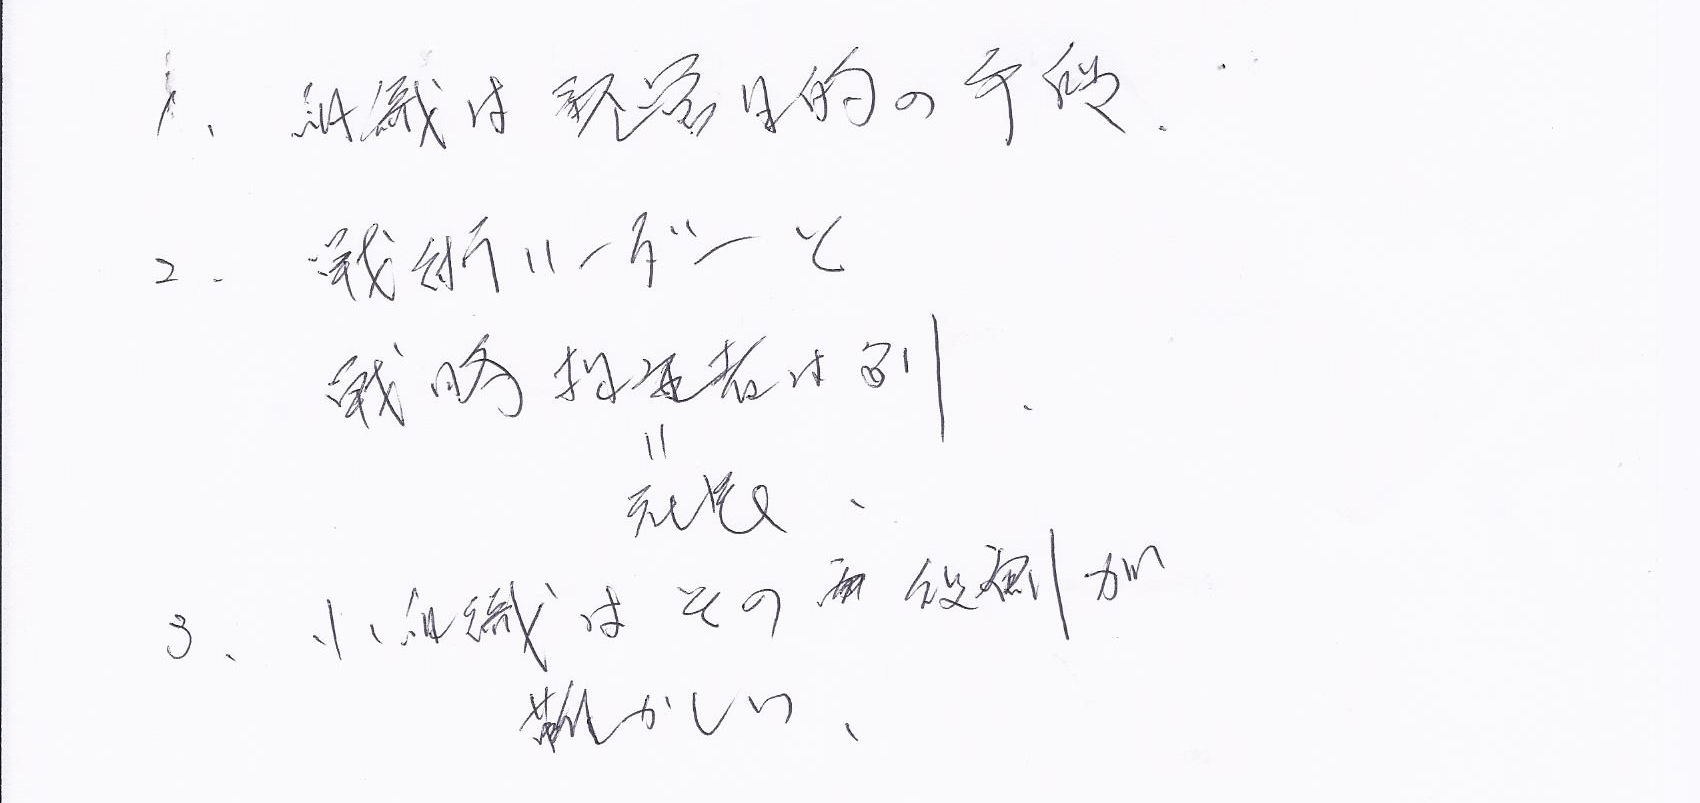 1、組織は経営目的の手段.
2. 戦術リーダーと
戦略投運者は別.
〃
社長、
3、小組織はその両役割が
難かしい、